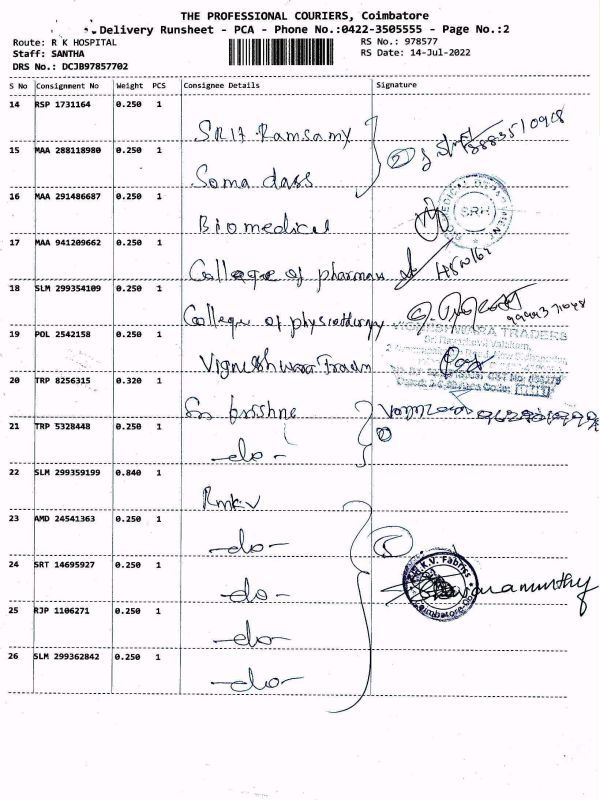 THE PROFESSIONAL COURIERS, Coimbatore
Delivery Runsheet - PCA - Phone No.:0422-3505555 - Page No.:2
Route: R K HOSPITAL
Staff: SANTHA
DRS No.: DCJB97857702
RS No.: 978577
RS Date: 14-Jul-2022
S No Consignment No Weight PCS Consignee Details Signature
14 RSP 1731164 0.250 1
Ramsamy
15 MAA 288118980 0.250 1
Soma dass
16 MAA 291486687 0.250 1
Biomedical
SRH
17 MAA 941209662 0.250 1
College of pharmacy
18 SLM 299354109 0.250 1
College of physiotherapy
19 POL 2542158 0.250 1
Vigneshwara Traders
VIGNESHWARA TRADERS
20 TRP 8256315 0.320 1
Sri
21 TRP 5328448 0.250 1
-do-
22 SLM 299359199 0.840 1
Rmkv
23 AMD 24541363 0.250 1
-do-
24 SRT 14695927 0.250 1
-do-
25 RJP 1106271 0.250 1
-do-
26 SLM 299362842 0.250 1
-do-